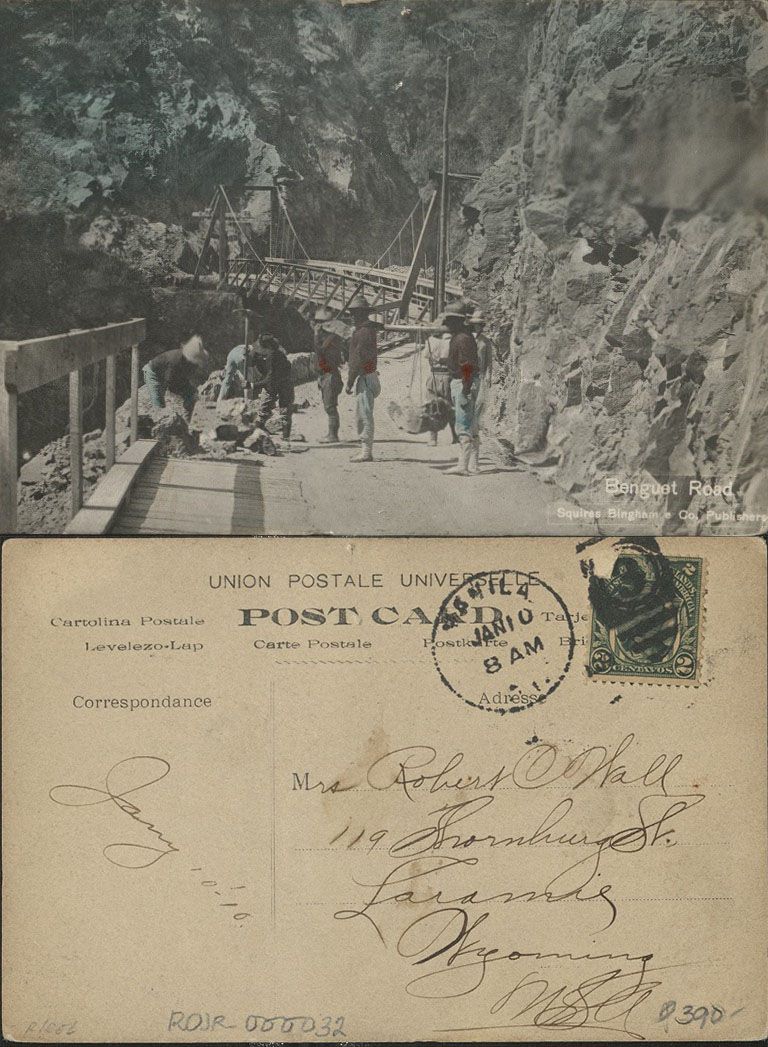 Benguet Road
Squires Bingham & Co. Publishers
UNION POSTALE UNIVERSELLE
Cartolina Postale
POST CARD
Tarje
Levelezo-Lap
Carte Postale
Postkarte
MANILA
JAN 10
8 AM
2
CENTAVOS
2
Correspondance
Adresse
Jany
10-'10.
Mrs Robert C Wall
119 Thornburg St.
Laramie
Wyoming
USA
ROJR-000032
₱390-